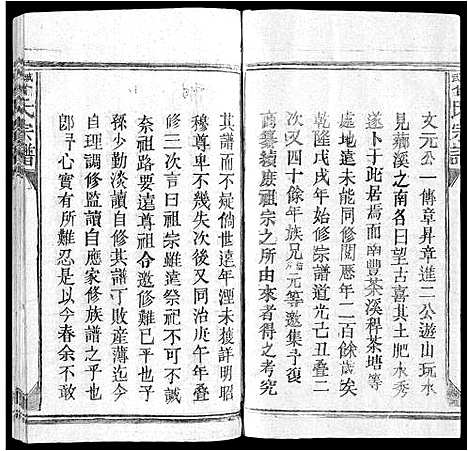 文元公一傳章昇章進二公遊山玩水
見藕溪之南名曰望古喜其土肥水秀
遂卜于此居焉而南豐茶溪稈茶塘等
處地遠未能同修閱歷年二百餘歲矣
乾隆戊戌年始修宗譜道光己丑叠二
次又四十餘年族兄元等邀集予復
商纂續庻祖宗之所由來者得之考究
其譜而不疑倘世遠年湮未獲詳明昭
穆尊卑不幾失次後又同治庚午年叠
修三次言曰祖宗雖遠祭祀不可不誠
奈祖路要遠尊祖合邀修難已乎也予
孫少勤淡讀自修其譜丁敗産薄迄今
自理調修監讀自應家修族譜之乎也
郎子心實有所難忍是以今春余不敢
氏宗譜